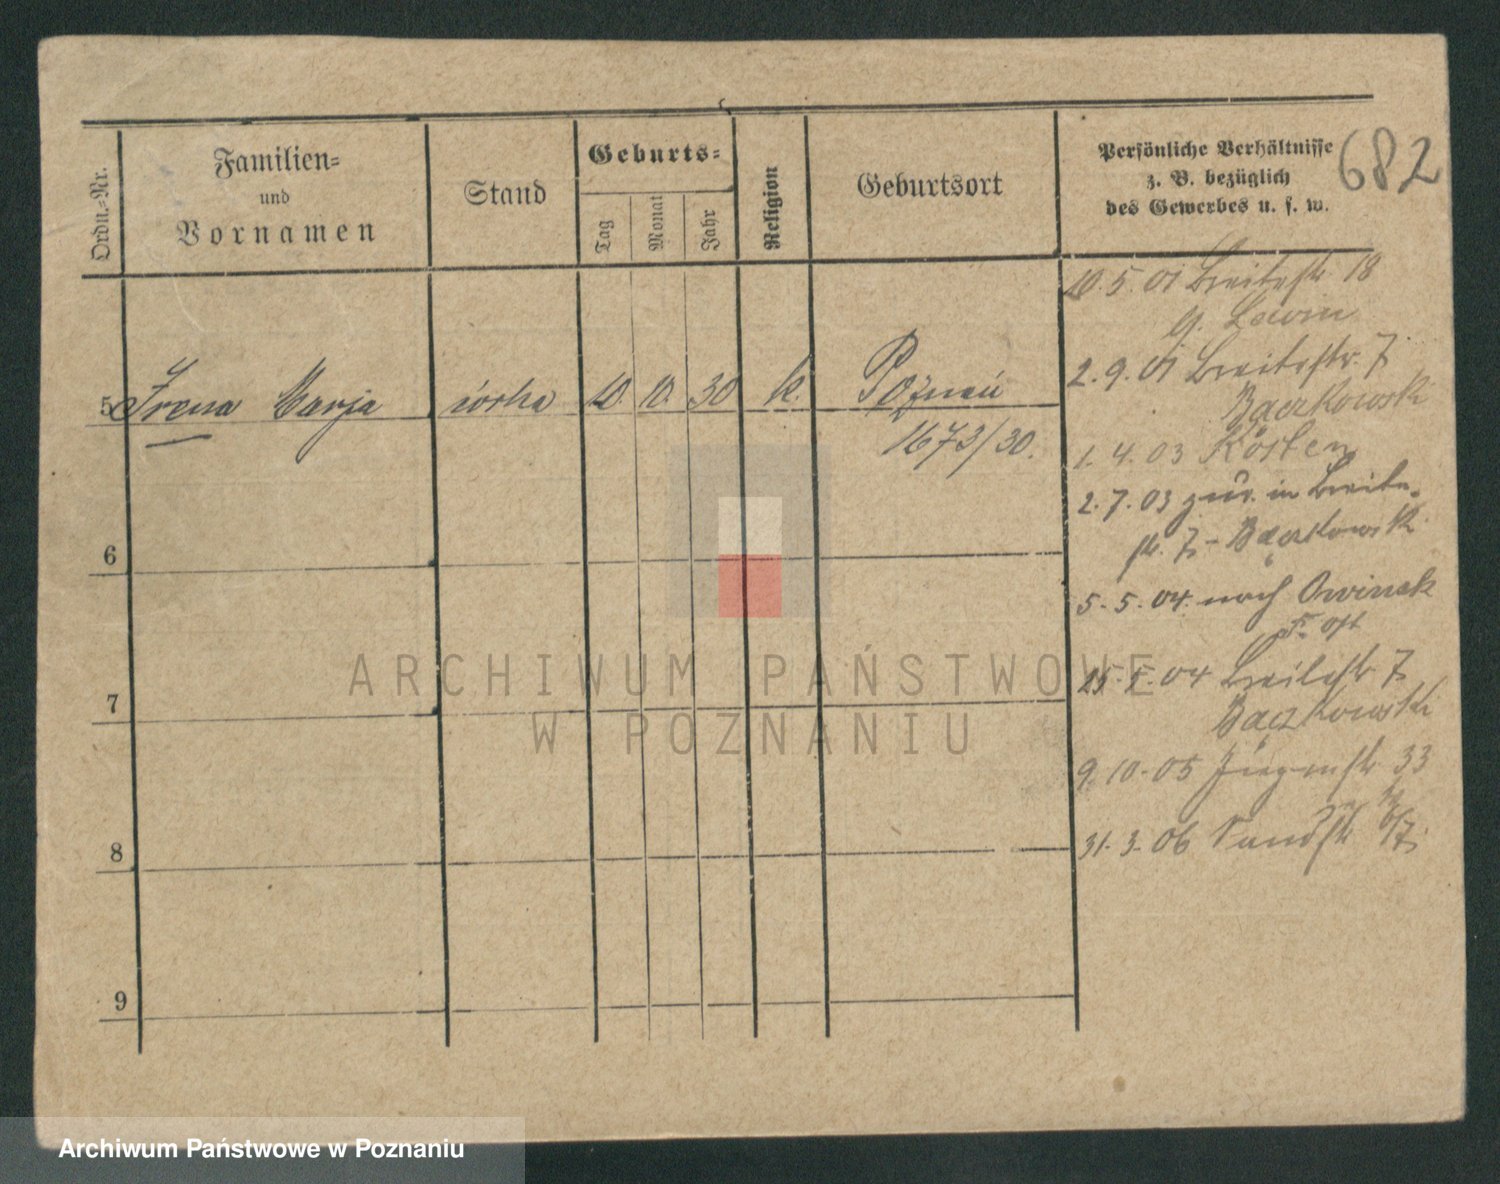 682
Ordn.=Nr.
Familien=
und
Vornamen
Stand
Geburts=
Tag
Monat
Jahr
Religion
Geburtsort
Persönliche Verhältnisse
z. B. bezüglich
des Gewerbes u. s. w.
5 Irena Marja córka 10. 10. 30 k. Poznań
1673/30.
6
7
8
9
10.5.01 Breitestr 18
G. Lewin
2.9.01 Breitestr. 7
Baczkowski
1.4.03 Kosten
2.7.03 zur. in Breite-
str. 7 - Bączkowski
5.5.04 nach Owinsk
Kr. Ost
25.5.04 Breitestr 7
Bączkowski
9.10.05 33
31.3.06 Sandstr
ARCHIWUM PAŃSTWOWE
W POZNANIU
Archiwum Państwowe w Poznaniu